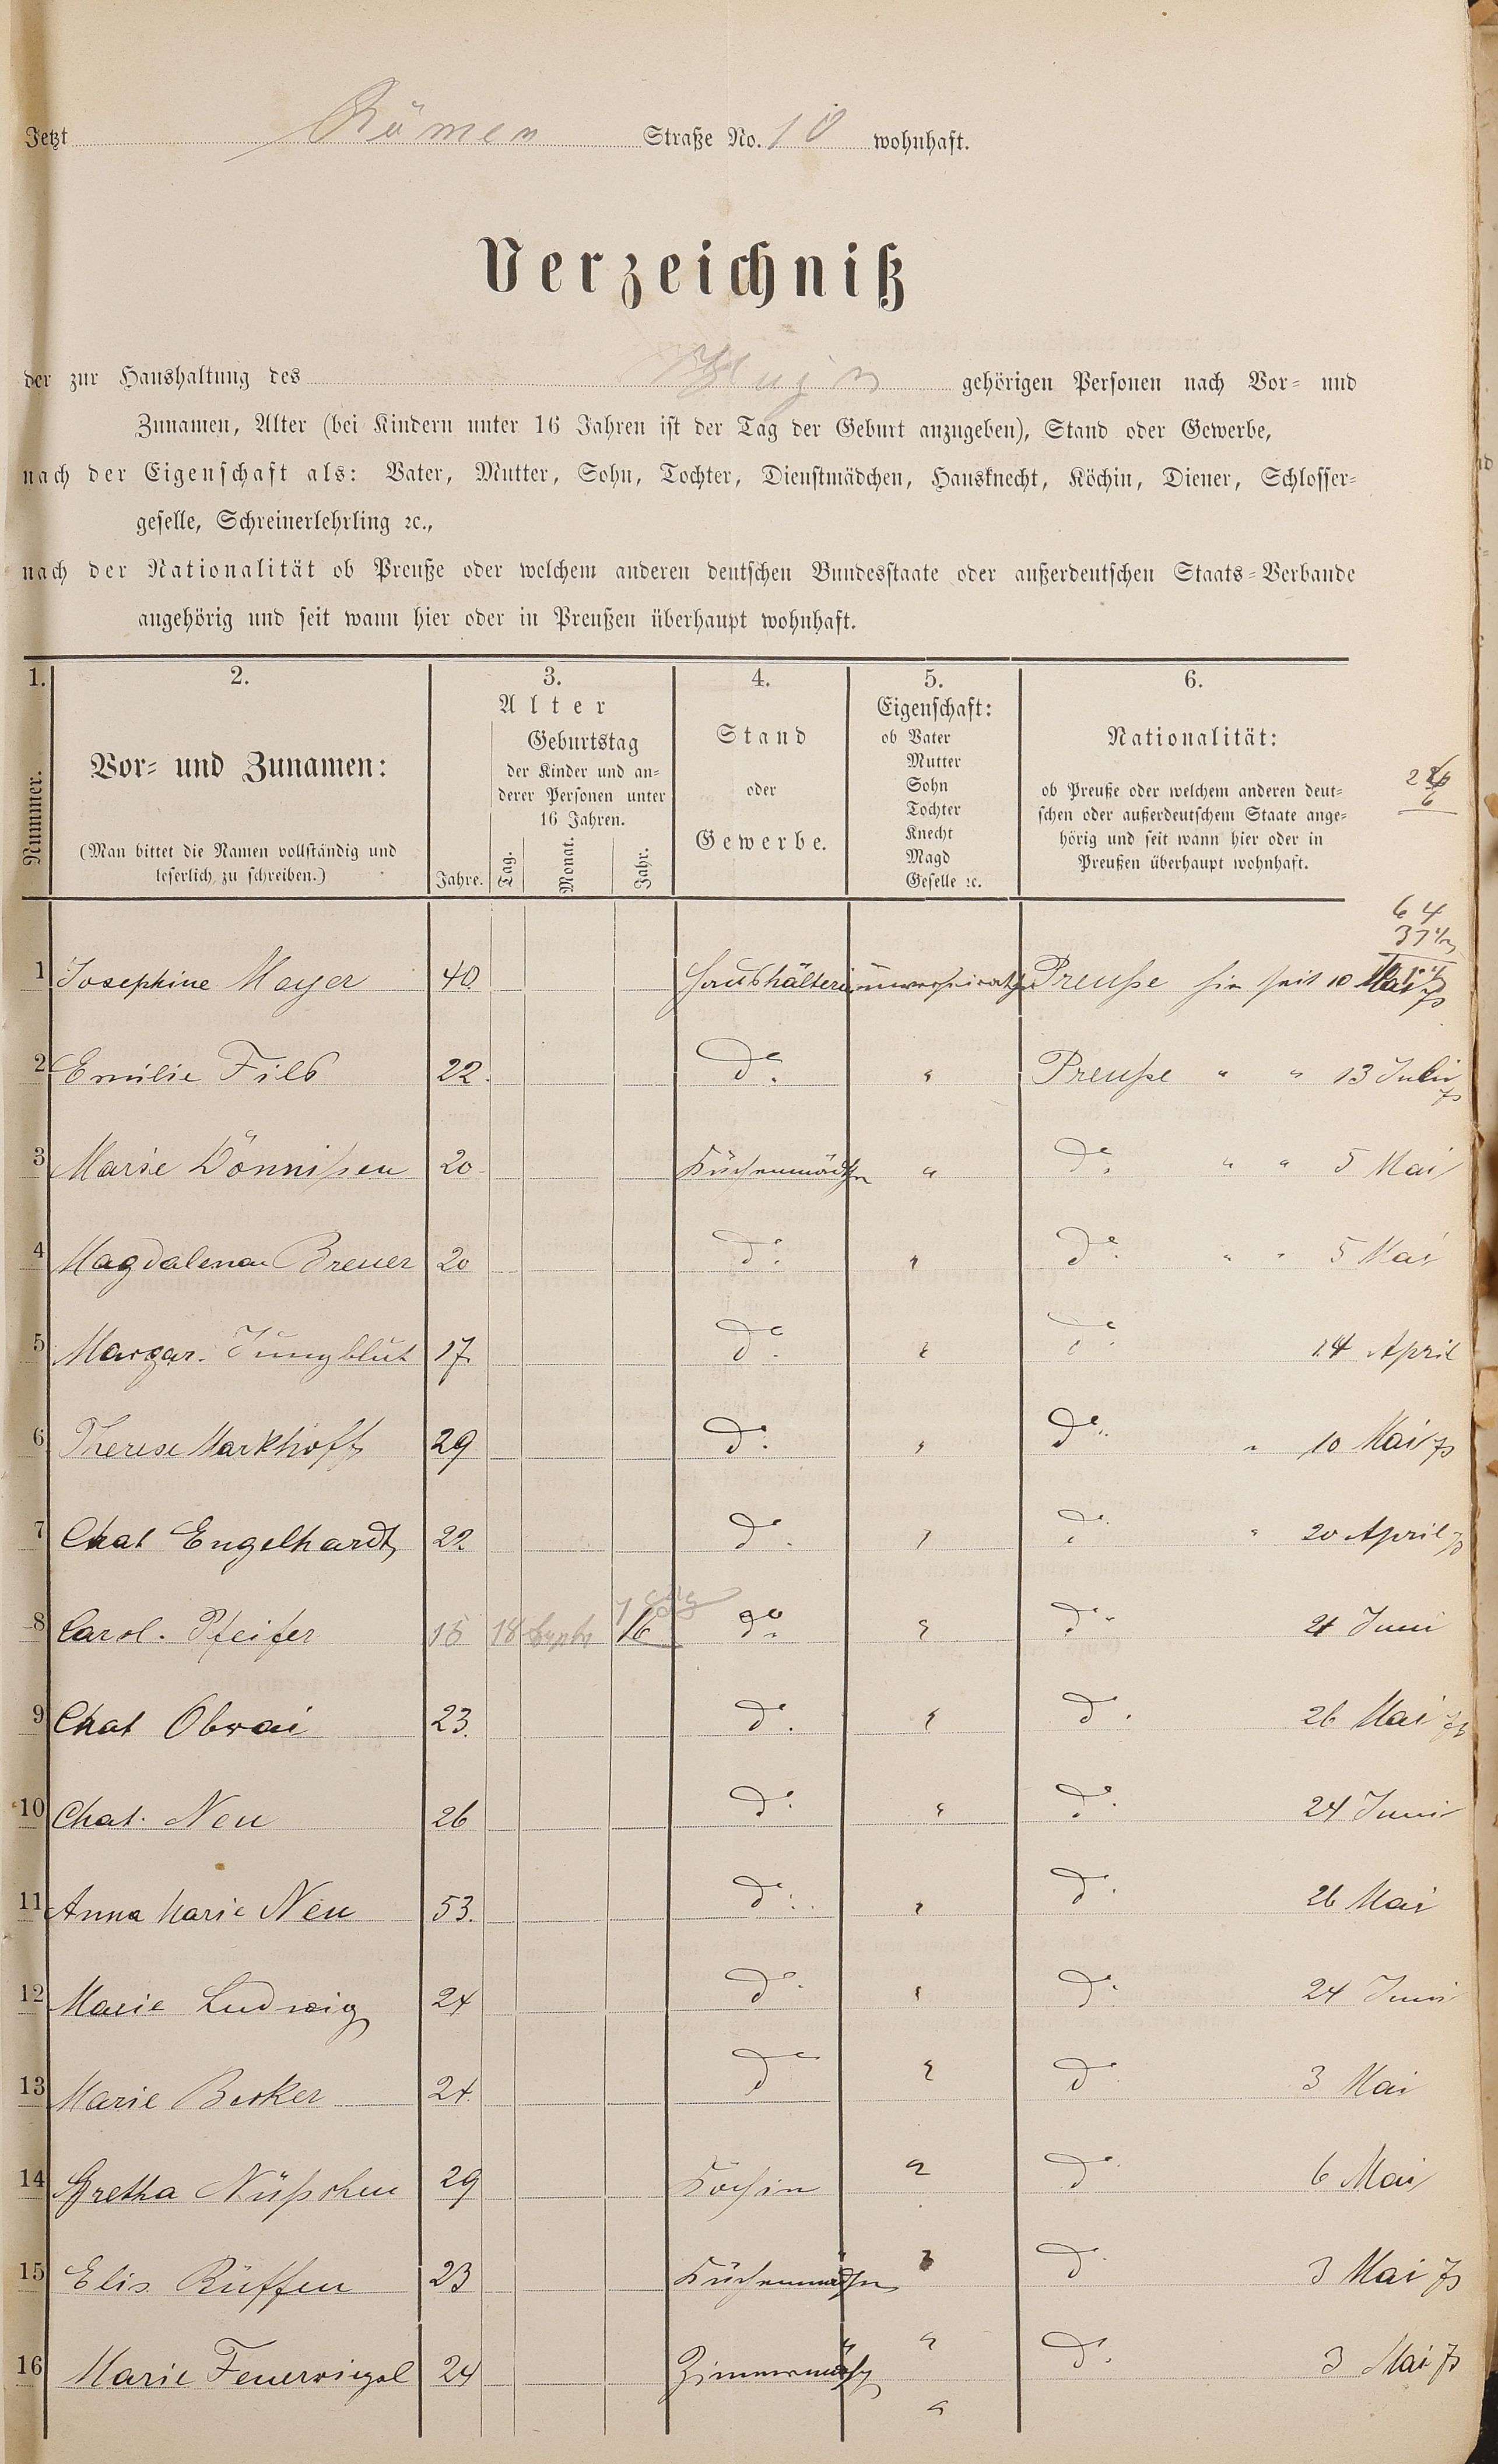 Jetzt Römer Straße No. 10 wohnhaft.
Verzeichniß
der zur Haushaltung des gehörigen Personen nach Vor- und
Zunamen, Alter (bei Kindern unter 16 Jahren ist der Tag der Geburt anzugeben), Stand oder Gewerbe,
nach der Eigenschaft als: Vater, Mutter, Sohn, Tochter, Dienstmädchen, Hausknecht, Köchin, Diener, Schlosser-
geselle, Schreinerlehrling ꝛc.,
nach der Nationalität ob Preuße oder welchem anderen deutschen Bundesstaate oder außerdeutschen Staats-Verbande
angehörig und seit wann hier oder in Preußen überhaupt wohnhaft.
1. 2. 3. 4. 5. 6.
Nummer.
Vor- und Zunamen:
(Man bittet die Namen vollständig und
leserlich zu schreiben.)
Alter
Jahre.
Geburtstag
der Kinder und an-
derer Personen unter
16 Jahren.
Tag. Monat. Jahr.
Stand
oder
Gewerbe.
Eigenschaft:
ob Vater
Mutter
Sohn
Tochter
Knecht
Magd
Geselle ꝛc.
Nationalität:
ob Preuße oder welchem anderen deut-
schen oder außerdeutschem Staate ange-
hörig und seit wann hier oder in
Preußen überhaupt wohnhaft.
6 4
1 Josephine Meyer 40 Haushälterin unverheirathet Preuße hier seit 10 Mai 75
2 Emilie Filb 22. do. " Preuße " " 13 Juli 75
3 Marie Dönnißen 20 Küchenmädchen " do. " " 5 Mai
4 Magdalena Breuer 20 do. " do. " " 5 Mai
5 Margar. Jungblut 17. do. " do. 14 April
6 Therese Markhoff 29 do. " do. " 10 Mai 75
7 Chat Engelhardt 22 do. " do. " 20 April 75
8 Carol. Pfeifer 15 18 16 do. " do. 21 Juni
9 Chat Obrai 23. do. " do. 26 Mai 75
10 Chat. Neu 26 do. " do. 24 Juni
11 Anna Marie Neu 53. do. " do. 26 Mai
12 Marie Ludwig 24 do. " do. 24 Juni
13 Marie Becker 24. do " do 3 Mai
14 Gretha Nüßchen 29 Köchin " do 6 Mai
15 Elis Rüffen 23 Küchenmädchen " do 3 Mai 75
16 Marie Feuervogel 24 Zimmermädch " do. 3 Mai 75
"